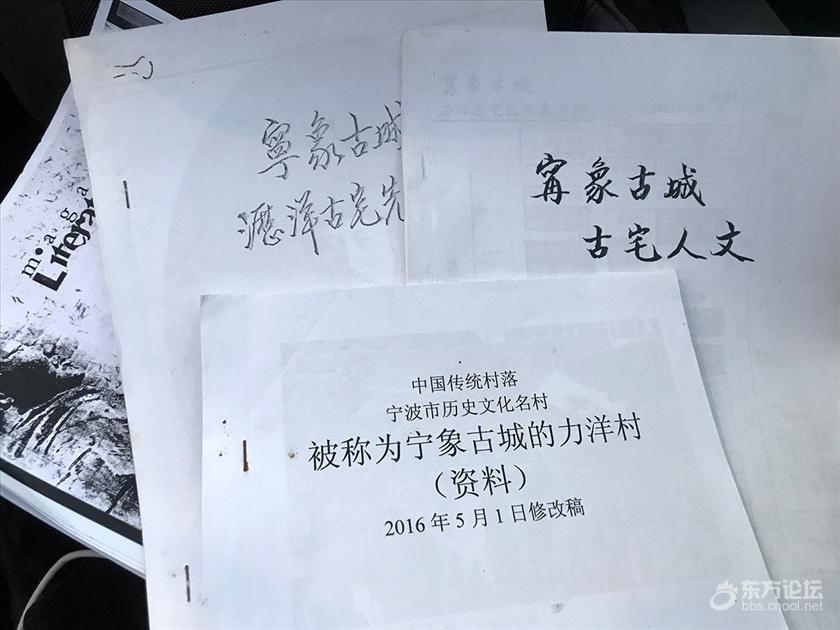 maga
Litera
寧象古城
瀝洋古宅先
甯象古城
古宅人文
中国传统村落
宁波市历史文化名村
被称为宁象古城的力洋村
（资料）
2016年5月1日修改稿
东方论坛
bbs.cnool.net